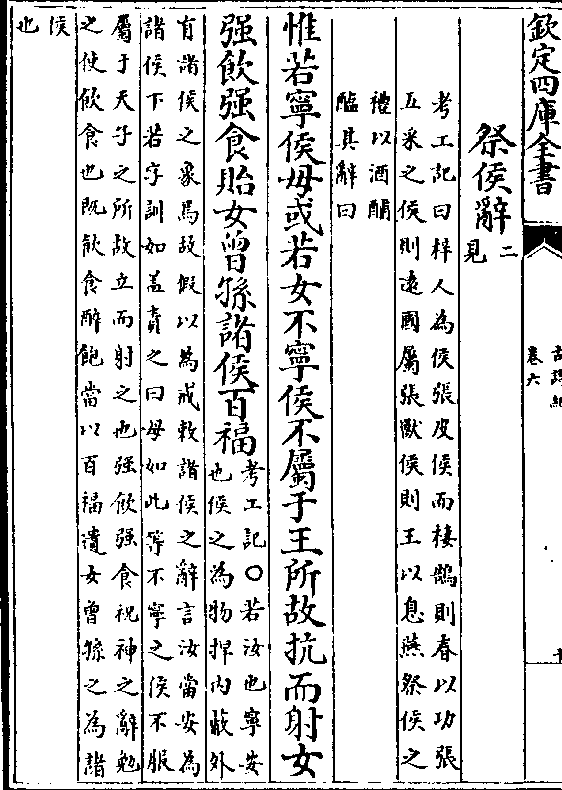 欽定四庫全書
卷六
祭侯辭
二
見
考工記曰梓人為侯張皮侯而棲鵠則春以功張
五采之侯則遠國屬張獸侯則王以息燕祭侯之
禮以酒脯
醢其辭曰
惟若寧侯毋或若女不寧侯不屬于王所故抗而射女
强飲强食貽女曾孫諸侯百福
考工記〇若汝也寧安
也侯之為物捍内蔽外
有諸侯之象焉故假以為戒敕諸侯之辭言汝當安為
諸侯下若字訓如盖責之曰毋如此等不寧之侯不服
屬于天子之所故立而射之也强飲强食祝神之辭勉
之使飲食也既飲食醉飽當以百福遺女曾孫之為諸
侯
也